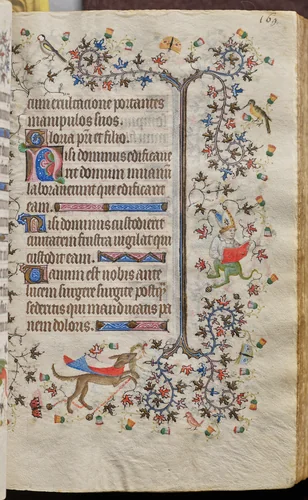 169.
cum exultacione portantes
manipulos suos.
Gloria pri et filio.
Nisi dominus edificaue
rint domum in uanū
laborauerunt qui edificant
eam.
Nisi dominus custodierit
ciuitatem frustra uigilat qui
custodit eam.
Uanum est nobis ante
lucem surgere surgite postq̄
sederitis qui manducatis pa
nem doloris.